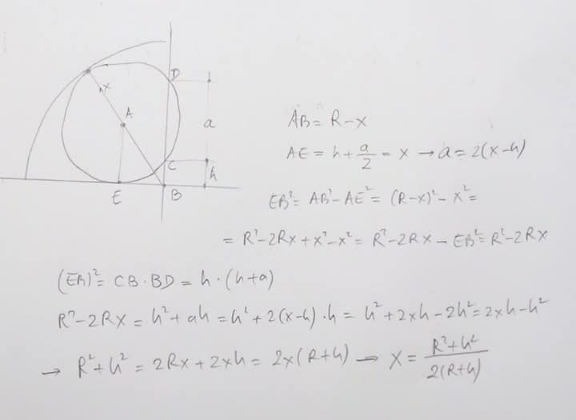 x
A
D
a
C
h
E
B
AB = R-x
AE = h + a/2 = x → a = 2(x-h)
EB² = AB² - AE² = (R-x)² - x² =
= R² - 2Rx + x² - x² = R² - 2Rx → EB² = R² - 2Rx
(EB)² = CB · BD = h · (h+a)
R² - 2Rx = h² + ah = h² + 2(x-h) · h = h² + 2xh - 2h² = 2xh - h²
→ R² + h² = 2Rx + 2xh = 2x(R+h) → x = (R² + h²)/(2(R+h))